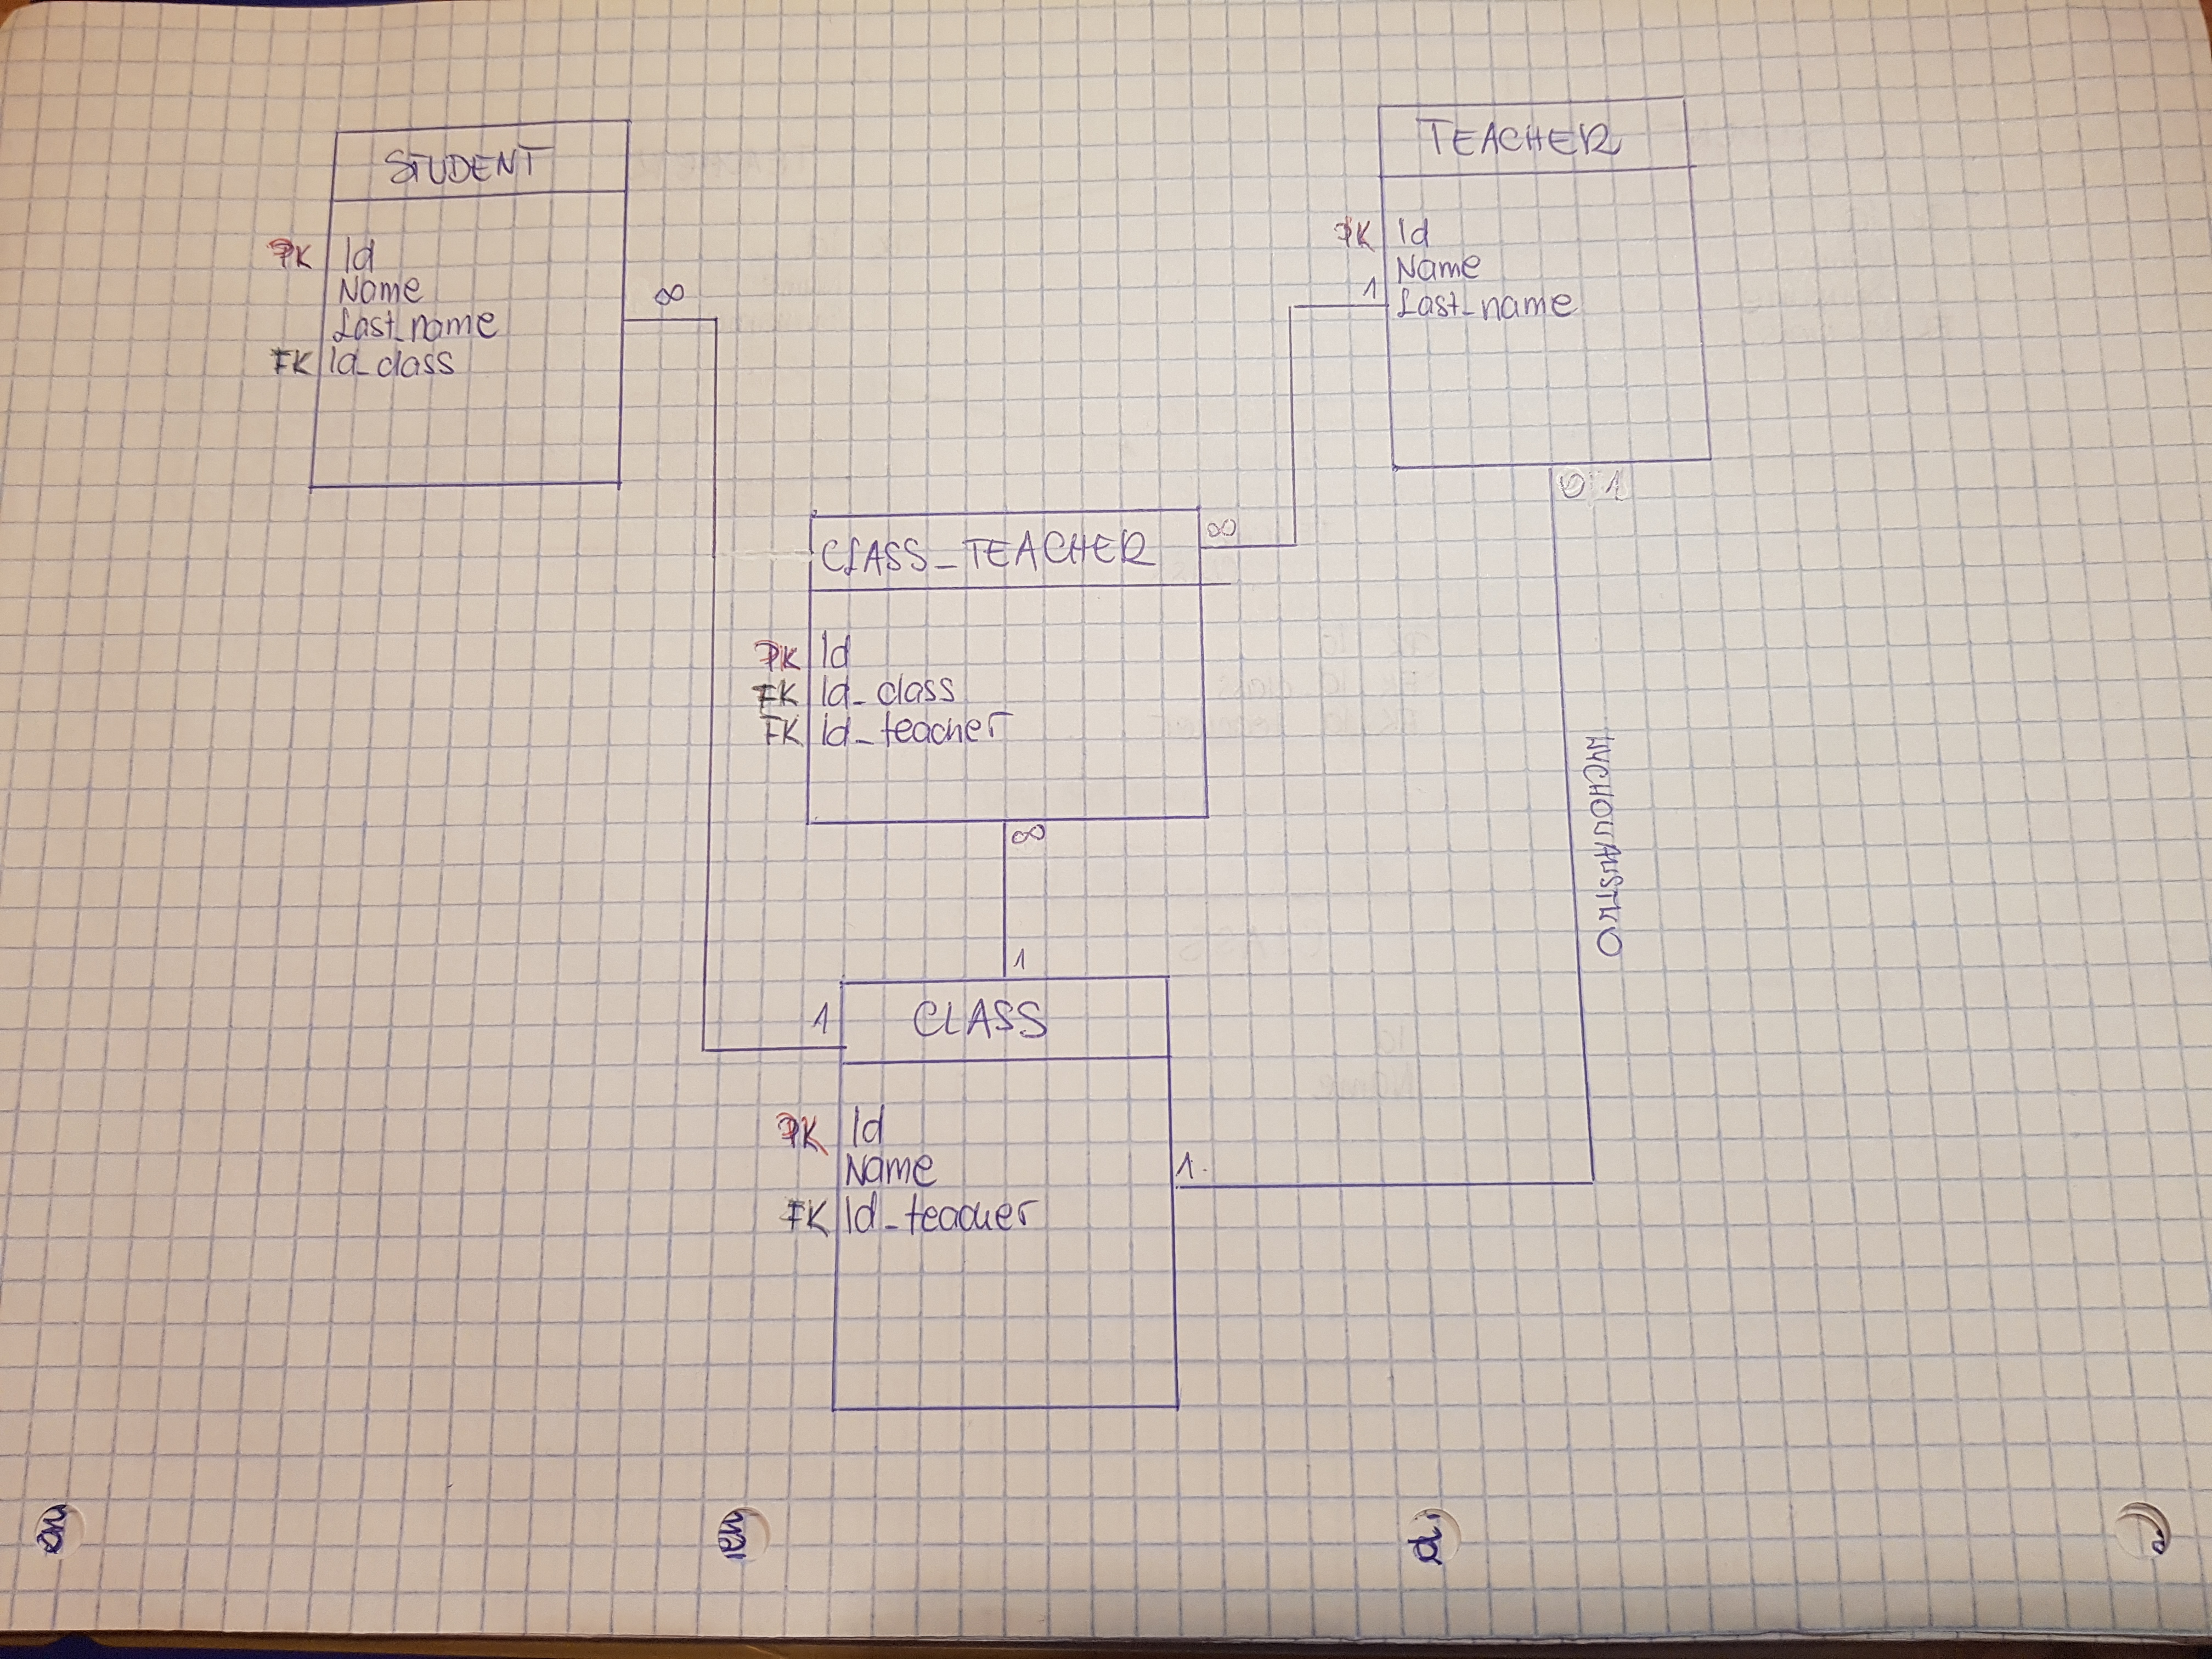 STUDENT
PK Id
Name
Last_name
FK Id_class
∞
TEACHER
PK Id
Name
1 Last_name
0 1
CLASS_TEACHER ∞
PK Id
FK Id_class
FK Id_teacher
∞
WYCHOWAWSTWO
1
1 CLASS
PK Id
Name
1
FK Id_teacher